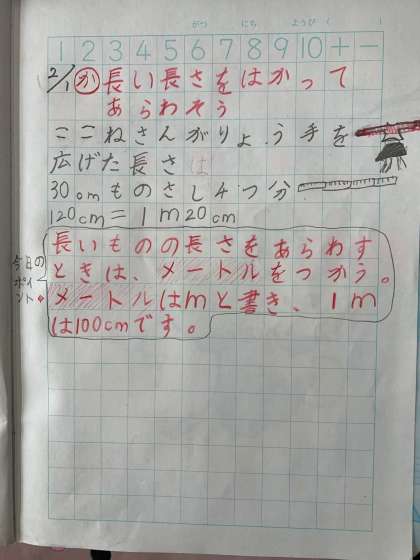 がつ にち ようび ( )
1 2 3 4 5 6 7 8 9 10 + −
2/1 か 長い長さをはかって
あらわそう
ここねさんがりょう手を
広げた長さは
30cmものさし4つ分
120cm=1m20cm
今日のポイント
長いものの長さをあらわす
ときは、メートルをつかう。
メートルはmと書き、1m
は100cmです。